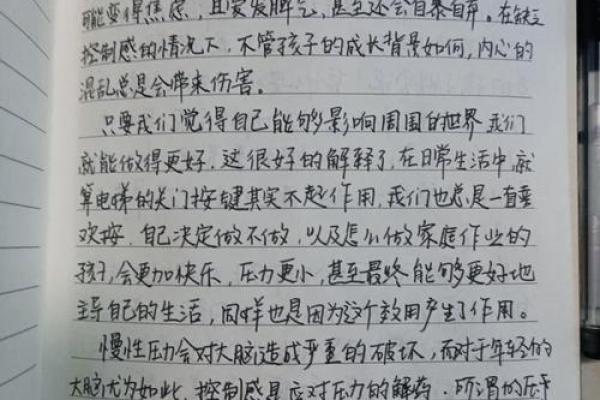 可能变得焦虑，且爱发脾气，甚至还会自暴自弃。在缺乏
控制感的情况下，不管孩子的成长背景如何，内心的
混乱总是会带来伤害。
只要我们觉得自己能够影响周围的世界，我们
就能做得更好。这很好的解释了，在日常生活中，就
算电梯的关门按键其实不起作用，我们也总是一直喜
欢按。自己决定做不做，以及怎么做家庭作业的
孩子，会更加快乐，压力更小，甚至最终能够更好地
主导自己的生活，同样也是因为这个效用产生了作用。
慢性压力会对大脑造成严重的破坏，而对于年轻的
大脑尤为如此，控制感是应对压力的解药。所谓的压